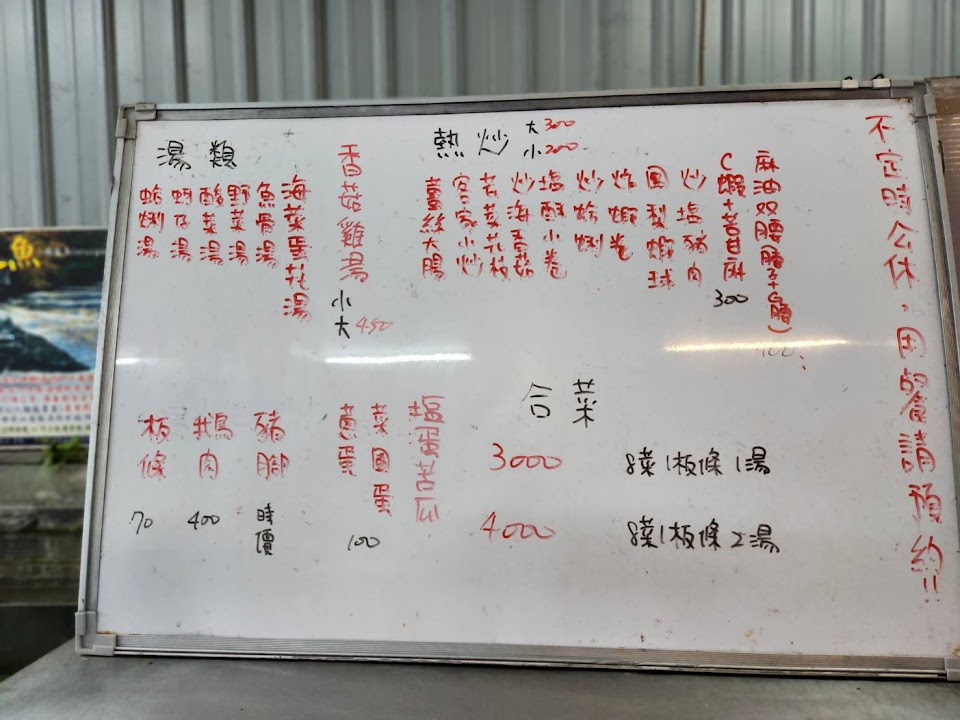 不定時公休，用餐請預約!!
熱炒 大300
小200
麻油双腰(腰子+鴨腰)
400
C蝦+苦甘麻
300
炒塩豬肉
凰梨蝦球
炸蝦卷
炒蛤蜊
塩酥小卷
炒海香菇
客家小炒
薑絲大腸
湯類
香菇雞湯
小
大 450
海菜蛋花湯
魚骨湯
野菜湯
酸菜湯
蚵仔湯
蛤蜊湯
合菜
3000 8菜1板條1湯
4000 8菜1板條2湯
塩蛋苦瓜
菜圃蛋
蔥蛋
100
豬腳
時價
鵝肉
400
板條
70
魚